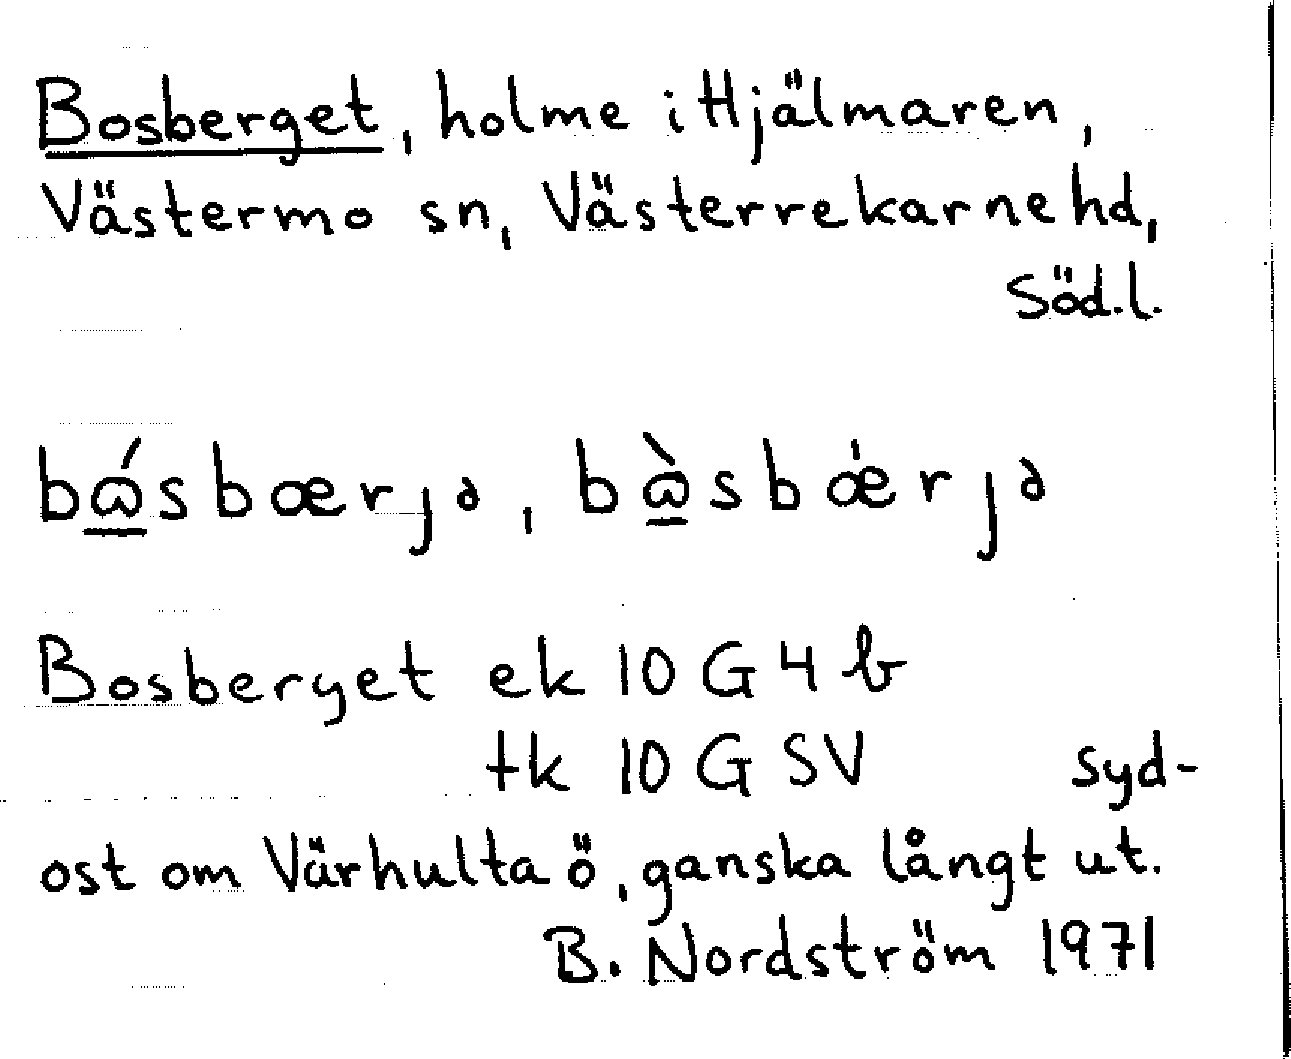 Bosberget, holme i Hjälmaren,
Västermo sn, Västerrekarne hd,
Söd.l.
bɷ̲́sbærȷə, bɷ̲̀sbæ̇rȷə
Bosberget ek 10 G 4 b
tk 10 G SV syd-
ost om Värhulta ö, ganska långt ut.
B. Nordström 1971